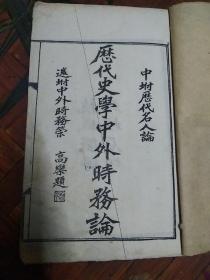 中坿歷代名人論
歷代史學中外時務論
遠坿中外時務策
高樂題